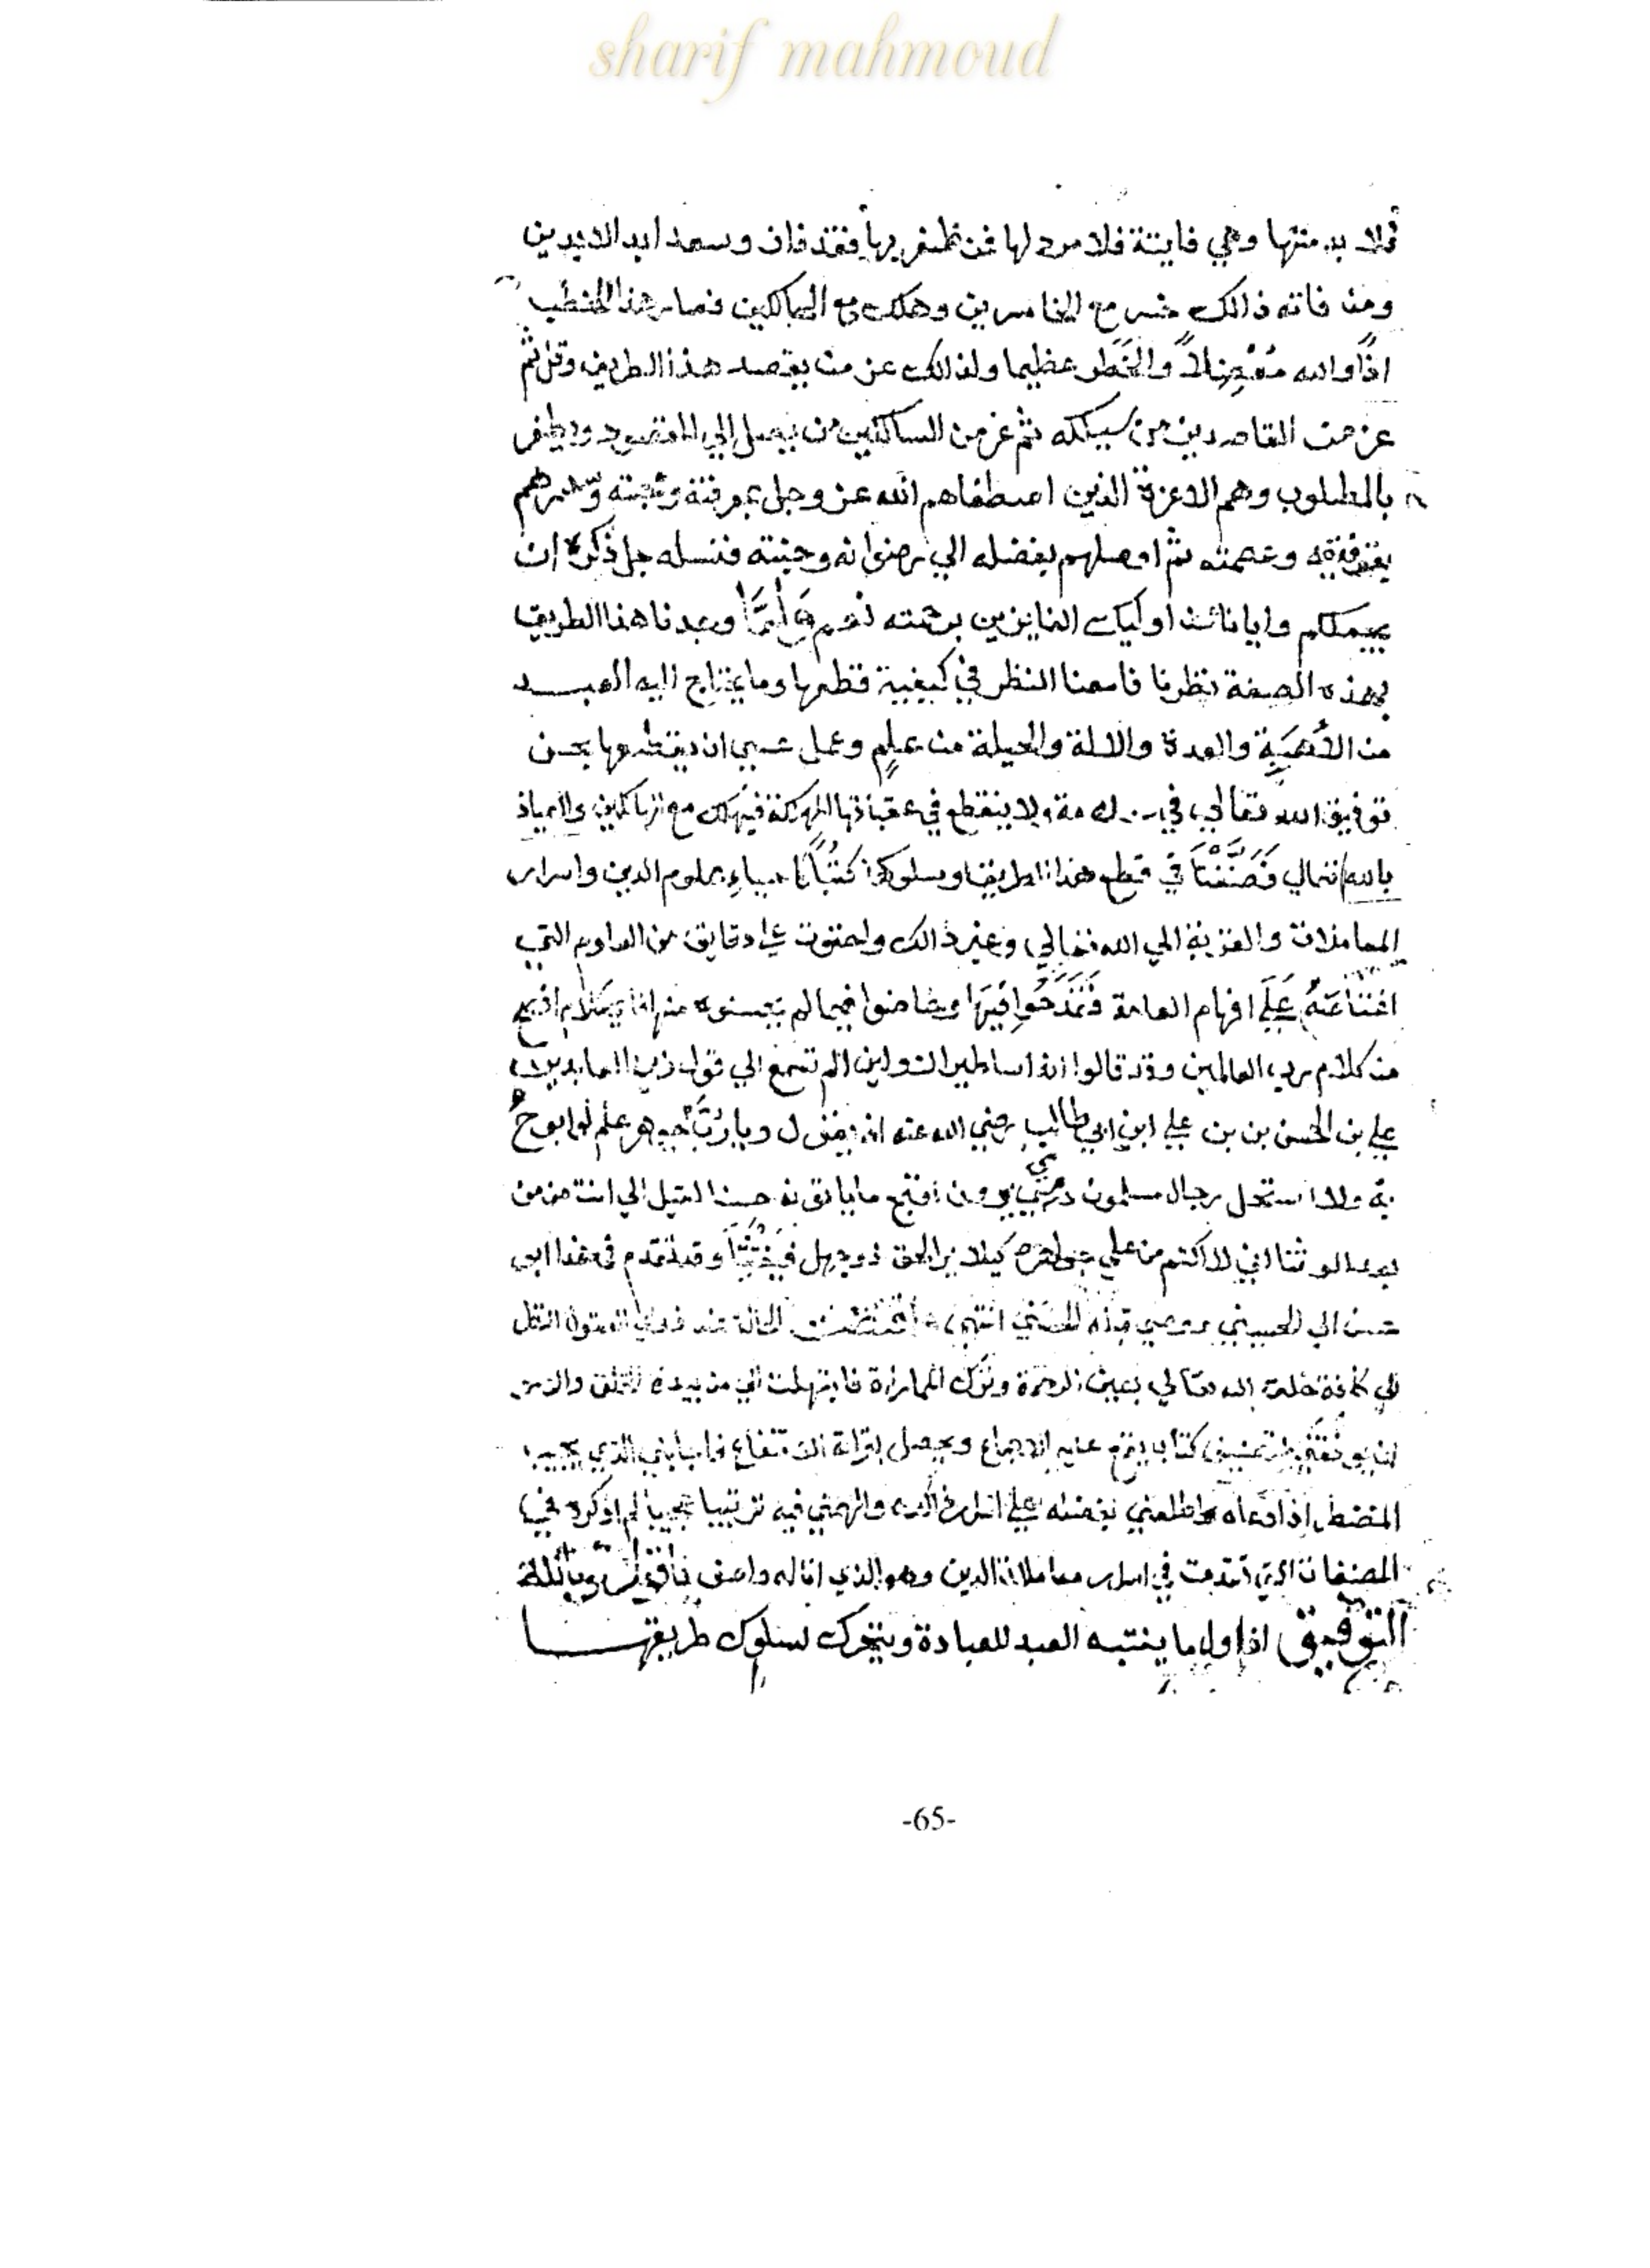 sharif mahmoud
فلا بد منها وهي فايتة فلا مرد لها فمن ظفر بها فقد فاز وسعد ابد الابدين
ومن فاته ذالك خسر مع الخاسرين وهلك مع الهالكين فصار هذا الخطب
اذًا والله مُعْضِلاً والخَطَر عظيما ولذالك عز من يقصد هذا الطريق وقل ثم
عز من القاصدين من يسلكه ثم عز من السالكين من يصل الي المقصود ويظفر
بالمطلوب وهم الاعزة الذين اصطفاهم الله عز وجل بمعرفته ومحبته
وعصمته ثم اوصلهم بفضله الي رضوانه وجنته فنسله جل ذكره ان
يجعلكم وايانا اوليك الفايزين برحمته نعم وَلَمَّا وجدنا هذا الطريق
بهذه الصفة نظرنا فامعنا النظر في كيفية قطعها وما يحتاج اليه العبد
من الأُهبَةِ والعدة والالة والحيلة من علمٍ وعمل عسي ان يقطعها بحسن
توفيق الله تعالي في ولا ينقطع في عقباتها المهلكة فيهلك مع الهالكين والعياذ
بالله تعالي فَصَنَّفْنَا في قطع هذا الطريق وسلوكه كُتُبًا كاحياءِ علوم الدين واسرار
المعاملات والقربة الي الله تعالي وغير ذالك واحتوت علي دقايق من العلوم التي
عَلَي افهام العامة فَقَدَحُوا فيها وخاضوا فيما لم يحسنوه منها فاي كلام افصح
من كلام رب العالمين وقد قالوا انه اساطير الاولين الم تسمع الي قول زين العابدين
علي بن الحسن بن بن علي ابن ابي طالب رضي الله عنه انه يقول ويا رُبَّ جوهر علم لو ابوح
به ولا استحل رجال مسلمون دمي يرون اقبح ما ياتونه حسنا لقيل لي انت ممن
يعبد الوثنا اني لاكتم من علمي جواهره كيلا يرا الحق ذو جهل وقد تقدم في هذا ابو
حسن الي الحسين ووصي قبله الحسن انتهي الحالة عند النظر
الي كافة خلق الله تعالي بعين الرحمة وترك المماراة فابتهلت الي من بيده الخلق والامر
ان يوفقني لتصنيف كتاب يقع عليه الاجماع ويحصل بقراته الانتفاع فاجابني الذي يجيب
المضطر اذا دعاه واطلعني بفضله علي اسرار ذالك والهمني فيه ترتيبا عجيبا لم اذكره في
المصنفات التي تقدمت في اسرار معاملات الدين وهو الذي انا له واصف وبالله
التوفيق ان اول ما ينتبه العبد للعبادة ويتحرك لسلوك طريقها
-65-